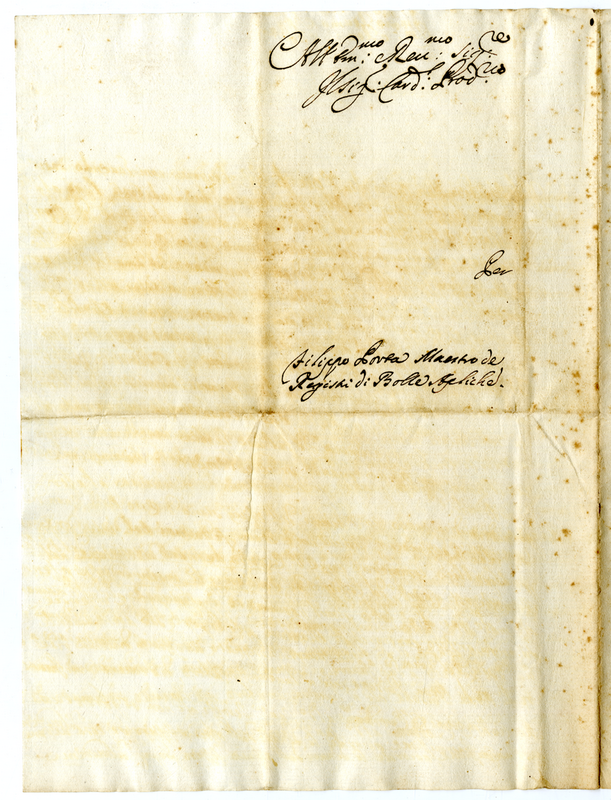 All' Em:mo Reu:mo Sig:re
Il Sig: Card:l Prod:rio
Per
Filippo Porta Maestro de
Registri di Bolle Apliche.